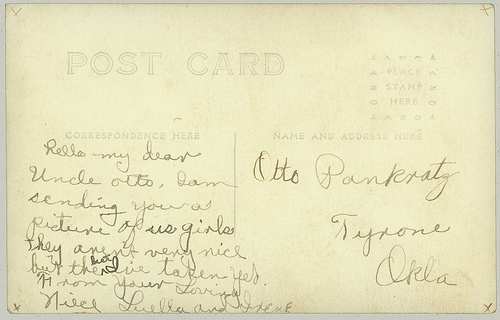 POST CARD
A A O A
A PLACE A
STAMP
O HERE O
A A O A
CORRESPONDENCE HERE
NAME AND ADDRESS HERE
Hello my dear
Uncle otto, Iam
sending you as
picture of us girls
they aren't very nice
but the best I've taken yet.
From your Loving
Niece Luella and Irene
Otto Pankratz
Tyrone
Okla